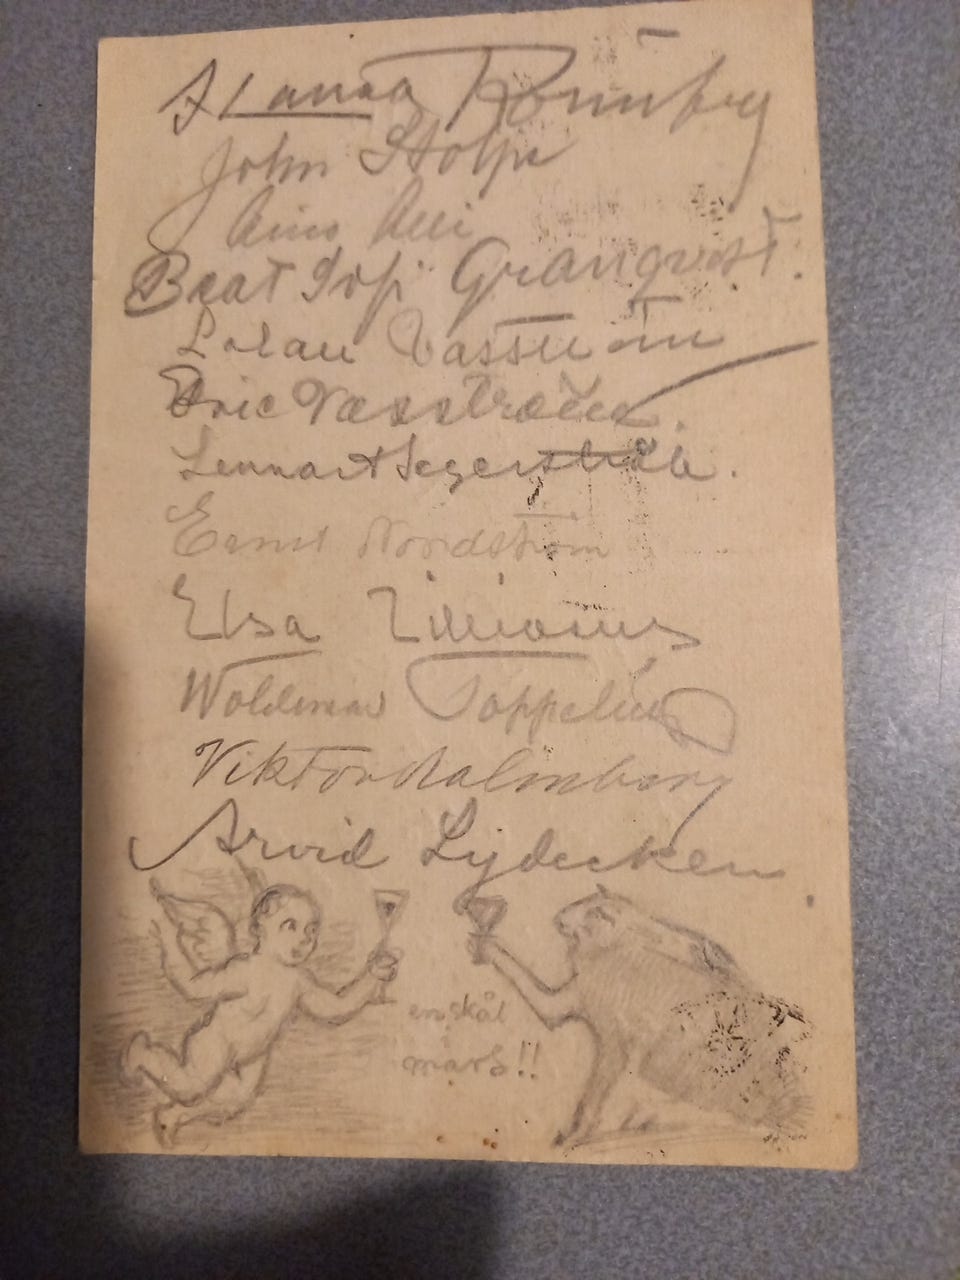 Hanna Rönnberg
John Stolpe
Aino Alli
Beat Sofi Granqvist.
Vasström
Eric Vasström.
Lennart Segerstråle.
Ernst Nordström
Elsa
Woldemar Toppelius
Viktor Malmberg
Arvid Lydecken.
en skål
mars!!